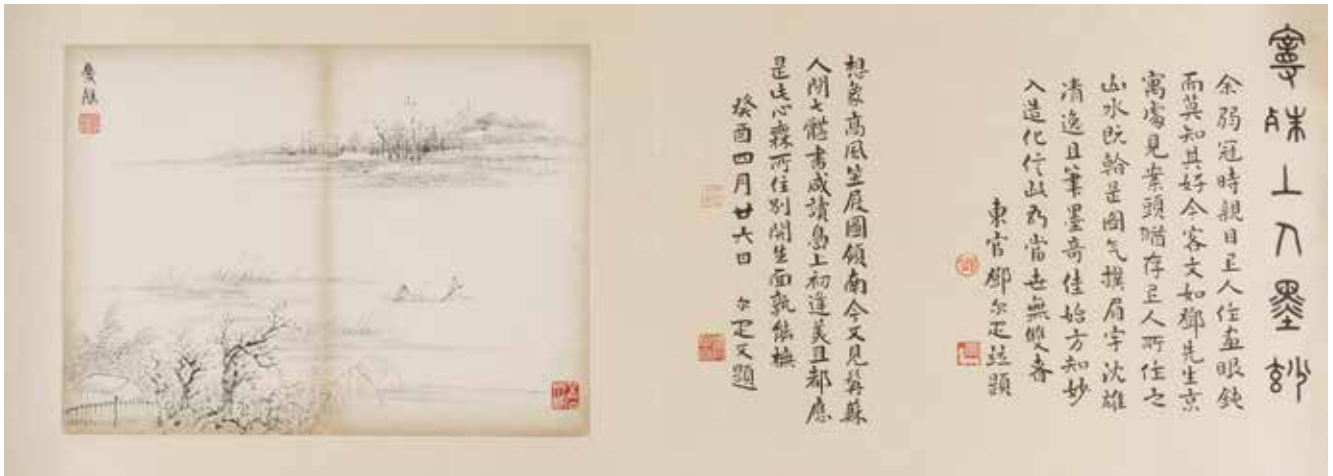 曼殊上人墨玅
余弱冠時親目上人作畫眼鈍
而莫知其好今客文如鄧先生京
寓處見案頭猶存上人所作之
山水既翰是圖气撲眉宇沈雄
清逸且筆墨奇佳始方知妙
入造化信此乃當世無雙者
東官鄧尔疋題
想象高風坐展圖領南今又見髯蘇
人間七體書成讀島上初逢美且都應
是此心無所住別開生面孰能橅
癸酉四月廿六日 尔疋又題
曼殊